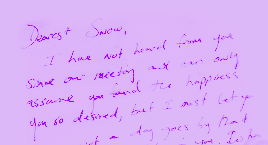 Dearest Susan,
I have not heard from you
since our meeting and can only
assume you found the happiness
you so desired, but I must let you
not a day goes by that